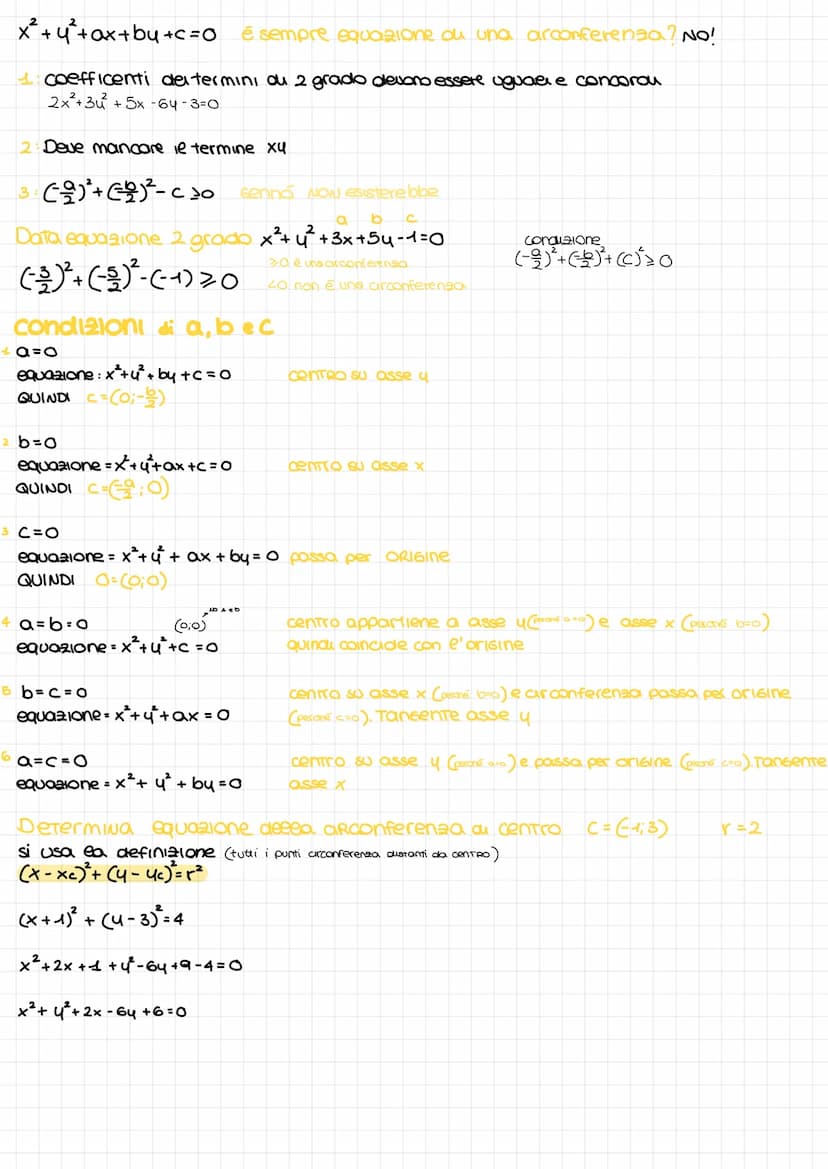 x²+y²+ax+by+c=0 é sempre equazione di una circonferenza? NO!
1: coefficenti dei termini di 2 grado devono essere uguali e concordi
2x²+3y²+5x-6y-3=0
2: Deve mancare il termine xy
3: (-a/2)²+(-b/2)²-c≥0 sennó NON esisterebbe
a b c
Data equazione 2 grado x²+y²+3x+5y-1=0
condizione
(-a/2)²+(-b/2)²+(c)²≥0
≥0 é una circonferenza
(-3/2)²+(-5/2)²-(-1)≥0
<0 non é una circonferenza
condizioni di a, b e c
1 a=0
equazione: x²+y²+by+c=0 centro su asse y
QUINDI c=(0;-b/2)
2 b=0
equazione=x²+y²+ax+c=0 centro su asse x
QUINDI c=(-a/2;0)
3 c=0
equazione=x²+y²+ax+by=0 passa per ORIGINE
QUINDI O=(0;0)
4 a=b=0 (0,0) centro appartiene a asse y (perché a=0) e asse x (perché b=0)
equazione=x²+y²+c=0 quindi coincide con l'origine
5 b=c=0 centro su asse x (perché b=0) e circonferenza passa per origine
equazione=x²+y²+ax=0 (perché c=0). Tangente asse y
6 a=c=0 centro su asse y (perché a=0) e passa per origine (perché c=0). Tangente
equazione=x²+y²+by=0 asse x
Determina equazione della circonferenza di centro C=(-1;3) r=2
si usa la definizione (tutti i punti circonferenza distanti da centro)
(x-xc)²+(y-yc)²=r²
(x+1)²+(y-3)²=4
x²+2x+1+y²-6y+9-4=0
x²+y²+2x-6y+6=0